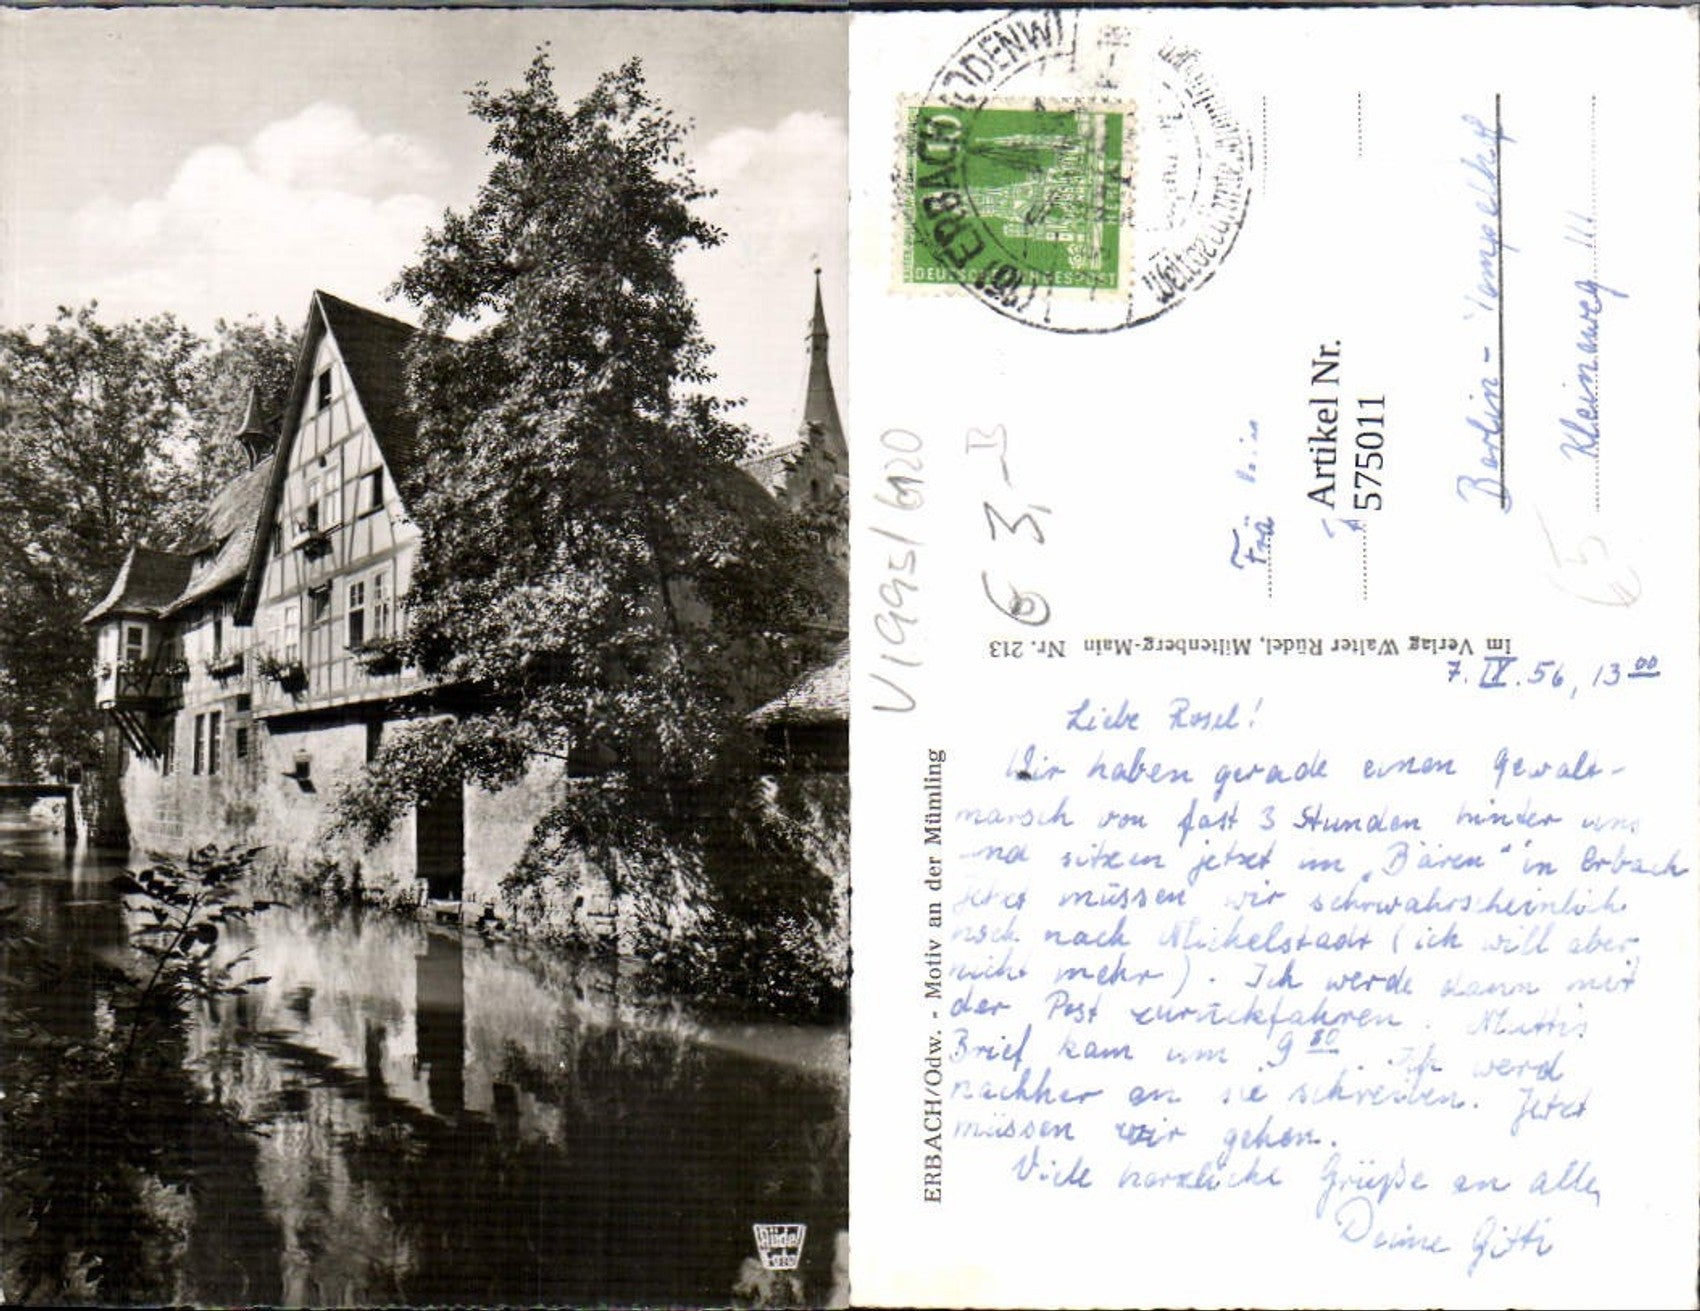 Rüdel
Foto
(16) ERBACH (ODENW)
DEUTSCHE BUNDESPOST
V1995/620
€ 3,-B
Frä
Artikel Nr.
575011
Berlin-Tempelhof
Kleinaweg
Im Verlag Walter Rüdel, Miltenberg-Main Nr. 213
ERBACH/Odw. - Motiv an der Mümling
7. IV. 56, 13 00
Liebe Rosel!
Wir haben gerade einen Gewalt-
marsch von fast 3 Stunden hinter uns
und sitzen jetzt im „Bären" in Erbach
Jetzt müssen wir schrwahrscheinlich
noch nach Michelstadt (ich will aber
nicht mehr). Ich werde dann mit
der Post zurückfahren. Muttis
Brief kam um 9 30 Ich werd
nachher an sie schreiben. Jetzt
müssen wir gehen.
Viele herzliche Grüße an alle,
Deine Gitti